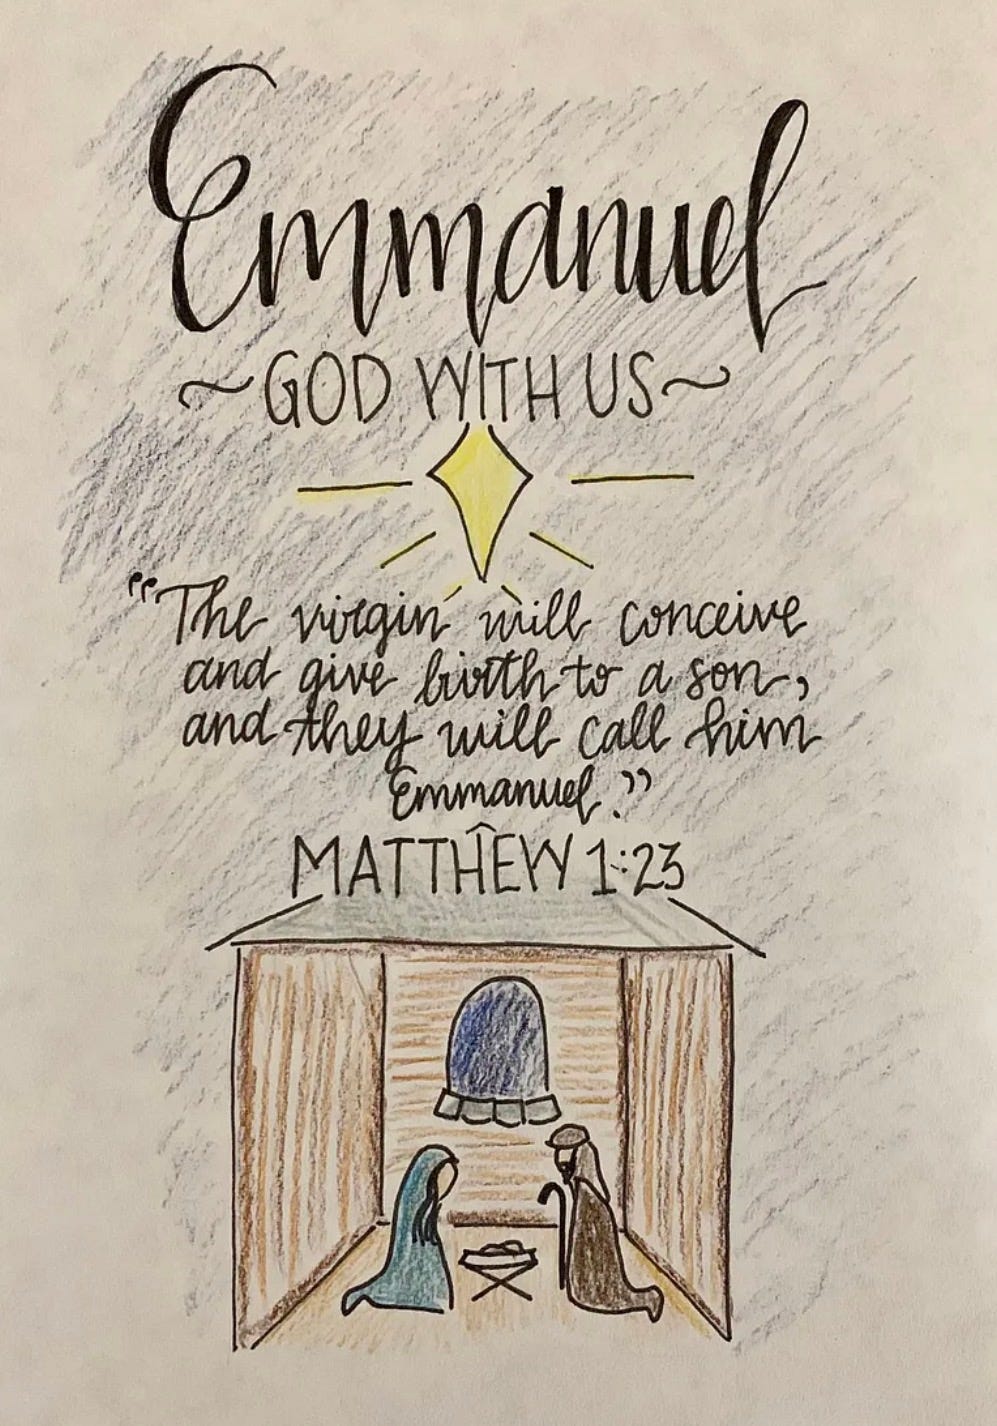 Emmanuel
~GOD WITH US~
"The virgin will conceive
and give birth to a son,
and they will call him
Emmanuel."
MATTHEW 1:23